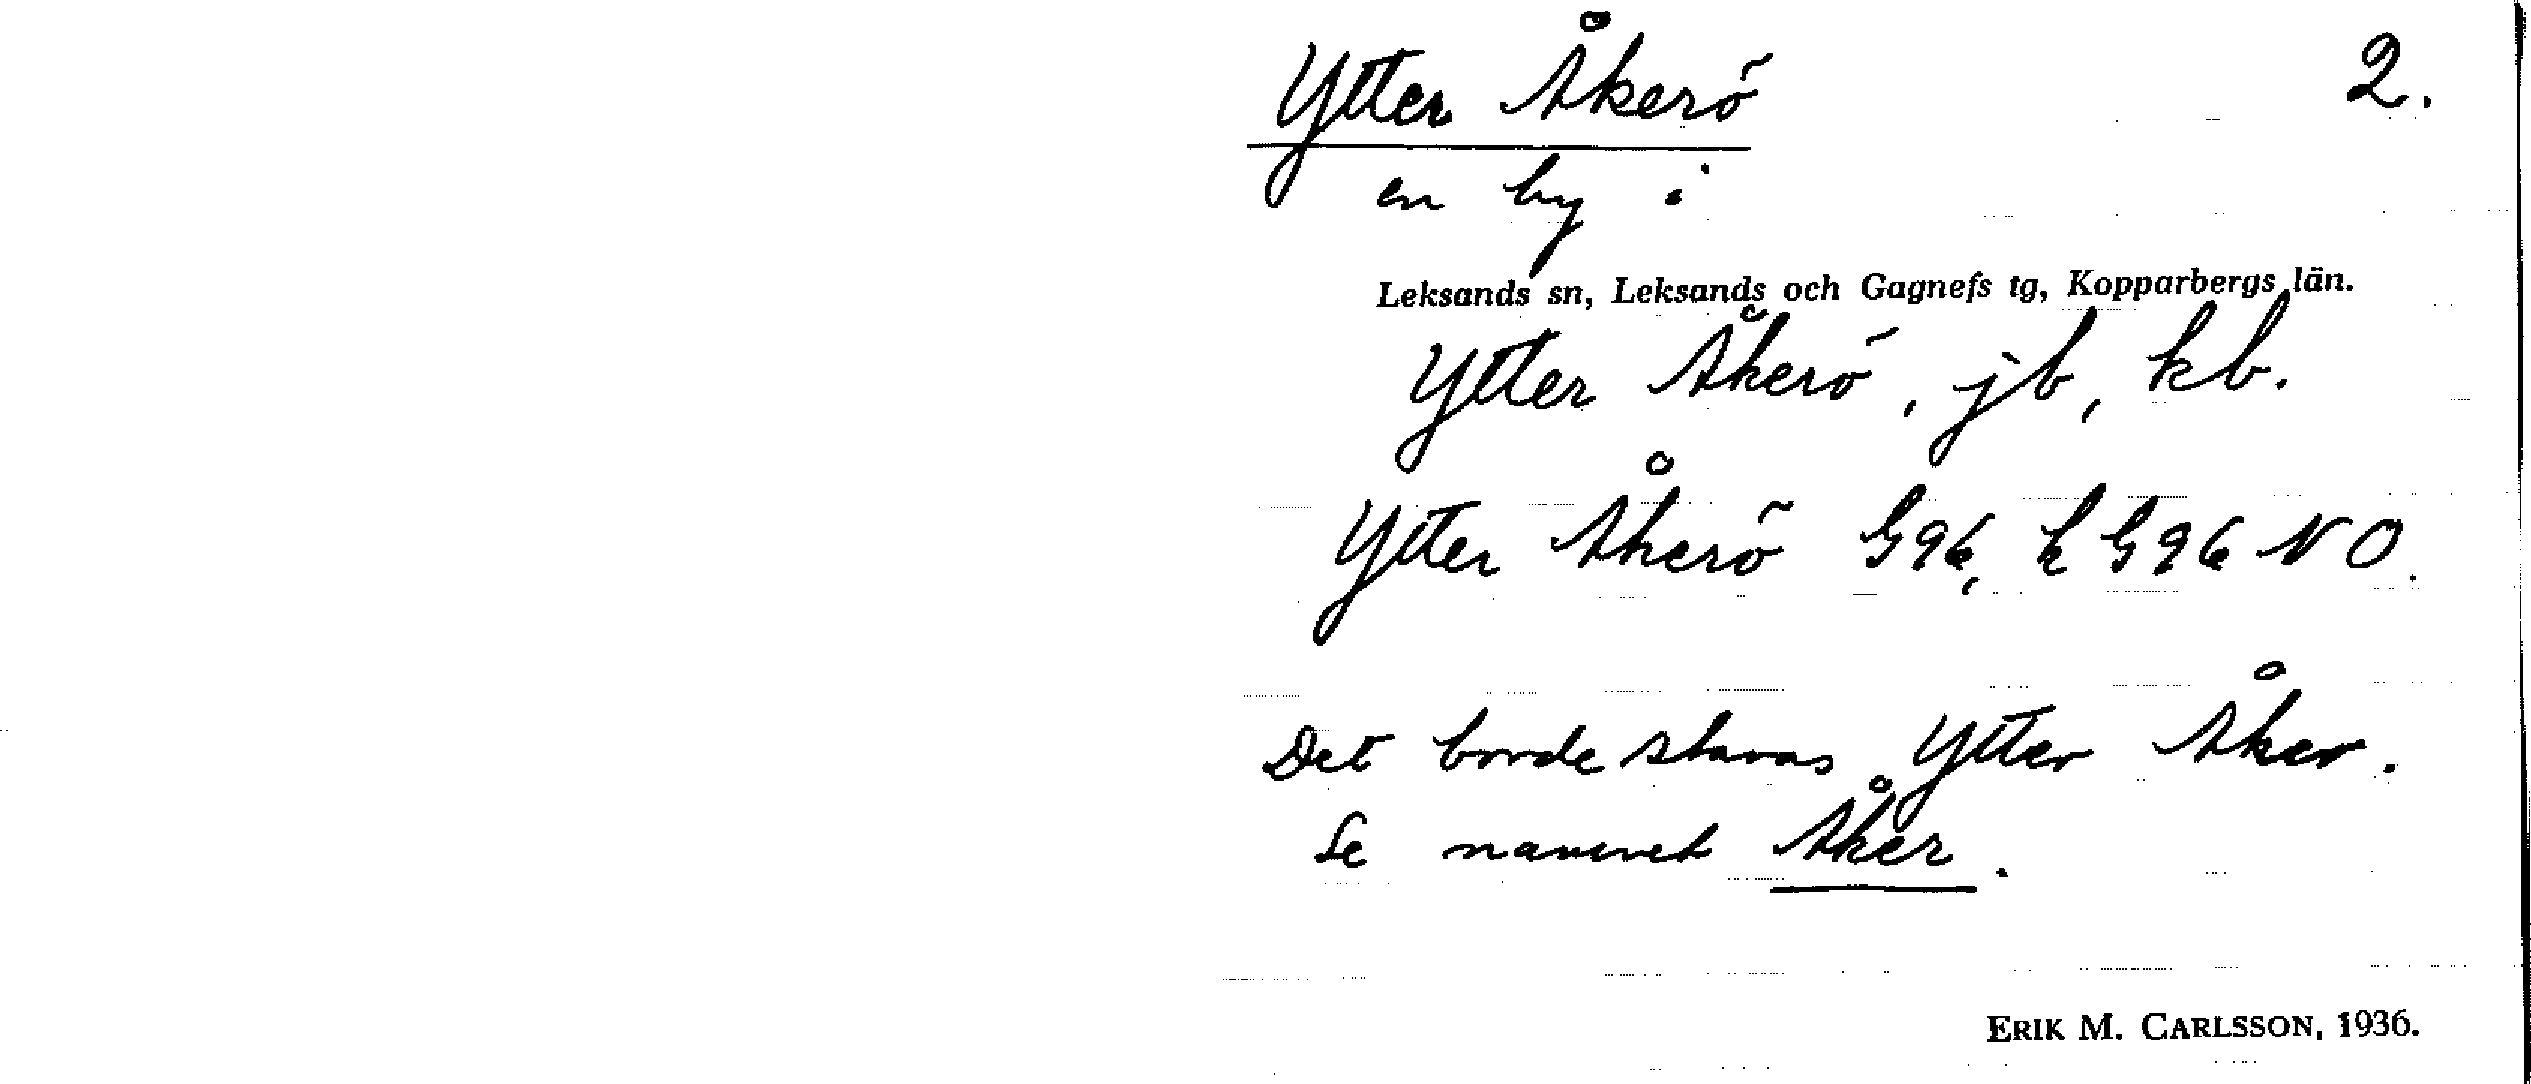 Ytter Åkerö 2.
en by i
Leksands sn, Leksands och Gagnefs tg, Kopparbergs län.
Ytter Åkerö, jb, kb.
Ytter Åkerö G96, k G96 NO.
Det borde stavas Ytter Åker.
Se namnet Åker.
ERIK M. CARLSSON, 1936.